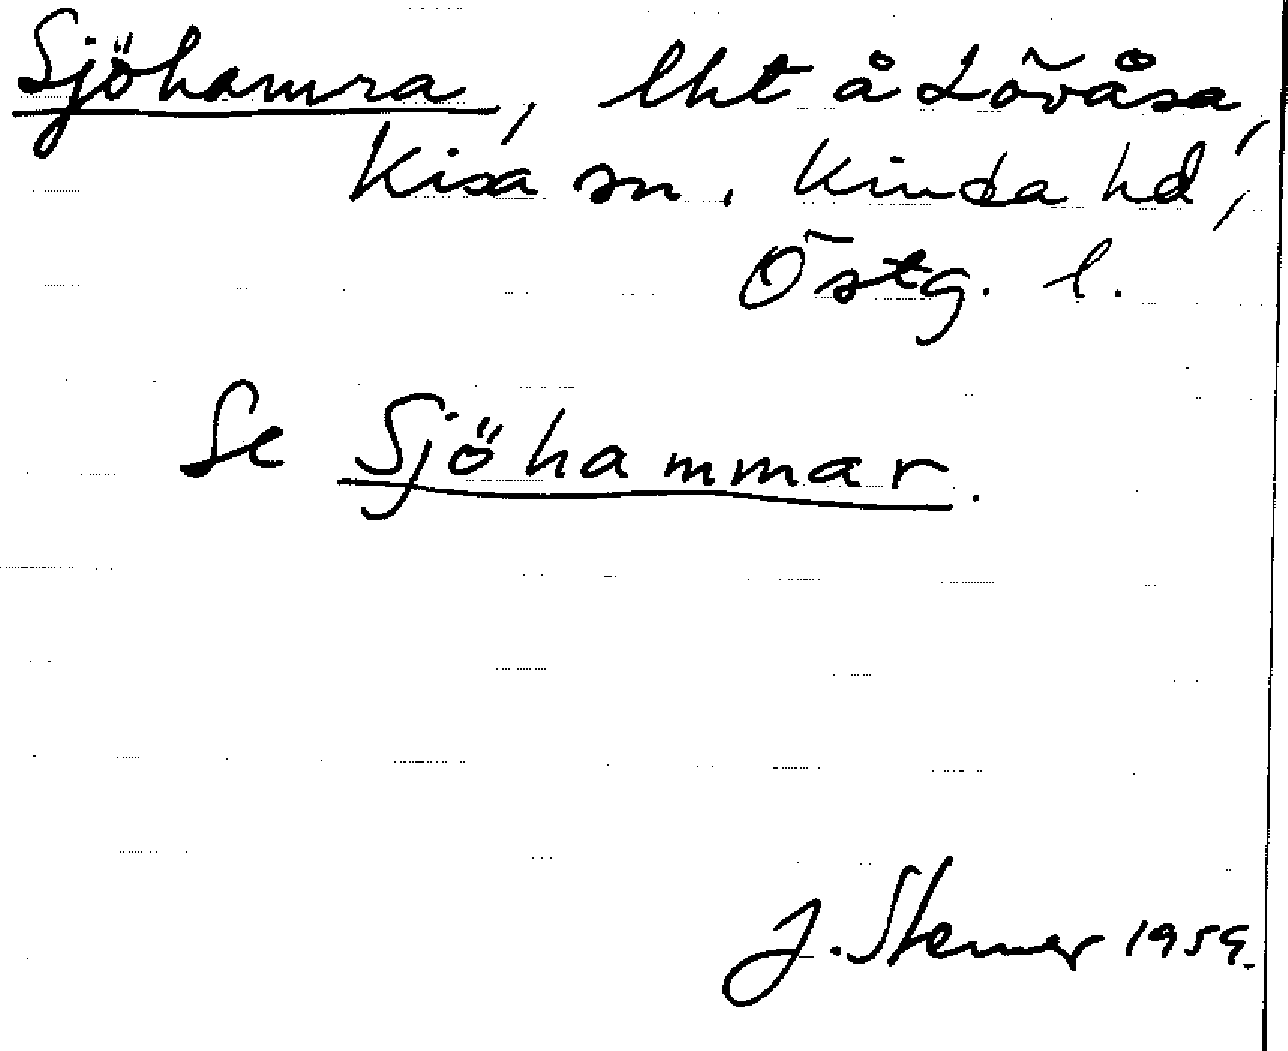 Sjöhamra, lht å Lövåsa,
Kisa sn, Kinda hd,
Östg. l.
Se Sjöhammar.
J. Sterner 1959.